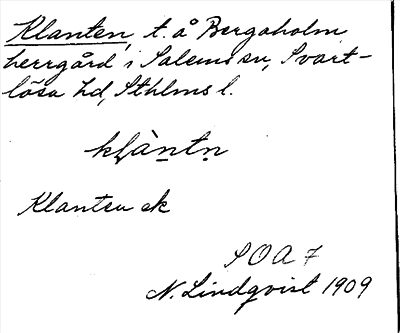 Klanten, t. å Bergaholm
herrgård i Salems sn, Svart-
lösa hd, Sthlms l.
klàntn
Klanten ek
SOA 7
N. Lindqvist 1909